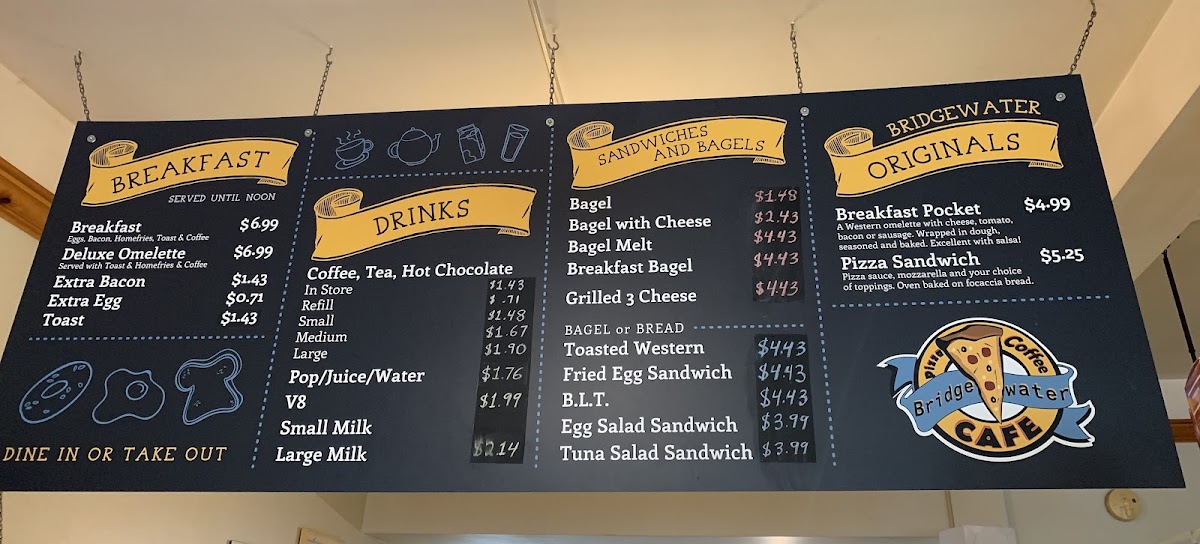 BREAKFAST
SERVED UNTIL NOON
Breakfast $6.99
Eggs, Bacon, Homefries, Toast & Coffee
Deluxe Omelette $6.99
Served with Toast & Homefries & Coffee
Extra Bacon $1.43
Extra Egg $0.71
Toast $1.43
DINE IN OR TAKE OUT
DRINKS
Coffee, Tea, Hot Chocolate
In Store $1.43
Refill $.71
Small $1.48
Medium $1.67
Large $1.90
Pop/Juice/Water $1.76
V8 $1.99
Small Milk
Large Milk $2.14
SANDWICHES
AND BAGELS
Bagel $1.48
Bagel with Cheese $2.43
Bagel Melt $4.43
Breakfast Bagel $4.43
Grilled 3 Cheese $4.43
BAGEL or BREAD
Toasted Western $4.43
Fried Egg Sandwich $4.43
B.L.T. $4.43
Egg Salad Sandwich $3.99
Tuna Salad Sandwich $3.99
BRIDGEWATER
ORIGINALS
Breakfast Pocket $4.99
A Western omelette with cheese, tomato,
bacon or sausage. Wrapped in dough,
seasoned and baked. Excellent with salsa!
Pizza Sandwich $5.25
Pizza sauce, mozzarella and your choice
of toppings. Oven baked on focaccia bread.
Pizza Coffee
Bridgewater
CAFE